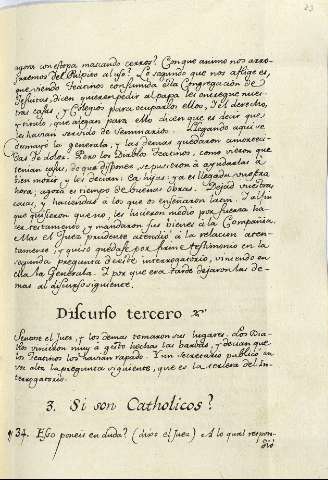 23
agora con estopa mascando cerros? Con que animo nos arro-
jaremos del Pulpito al uso? Lo segundo que nos aflige es,
que siendo Teatinos consumida esta Congregacion de
Jesuitas, dicen quieren pedir al papa les entregue nues-
tras casas, y Colegios para ocuparlos ellos, I el derecho,
y titulo, que alegan para ello dicen que es decir que
les havian servido de Seminario. Llegando aqui se
desmayò la generala, y las demas quedaron amorteci-
das de dolor. Pero los Diablos Teatinos, como vieron que
tenian casas, de que disponer se pusieron à ayudarlas à
bien morir y les decian: Ea hijas: ya es llegada vuestra
hora; agora es tiempo de buenas obras. Dejad vuestras
casas, y haciendas à los que os enseñaron
que quisieron que no, les hicieron medio por fuerza ha-
cer testamento y mandaron sus bienes à la Compañia.
Mas el Juez prudente atendiò à la relacion aten-
tamente, y quiso quedase por fin testimonio en la
segunda pregunta deste interrogatorio, viniendo en
ella la Generala. I por que era tarde dejaron las de-
mas al discurso siguiente.
Discurso tercero
Sentose el Juez, y los demas tomaron sus lugares. Los Dia-
blos vinieron muy à gesto hechas las barbas, y decian que
los Teatinos los havian rapado. I un Secretario publicò en
voz alta la pregunta siguiente, que es la tercera del In-
terrogatorio.
3. Si son Catholicos?
34. Esso poneis en duda? (dixo el Juez) A lo qual respon-
diò